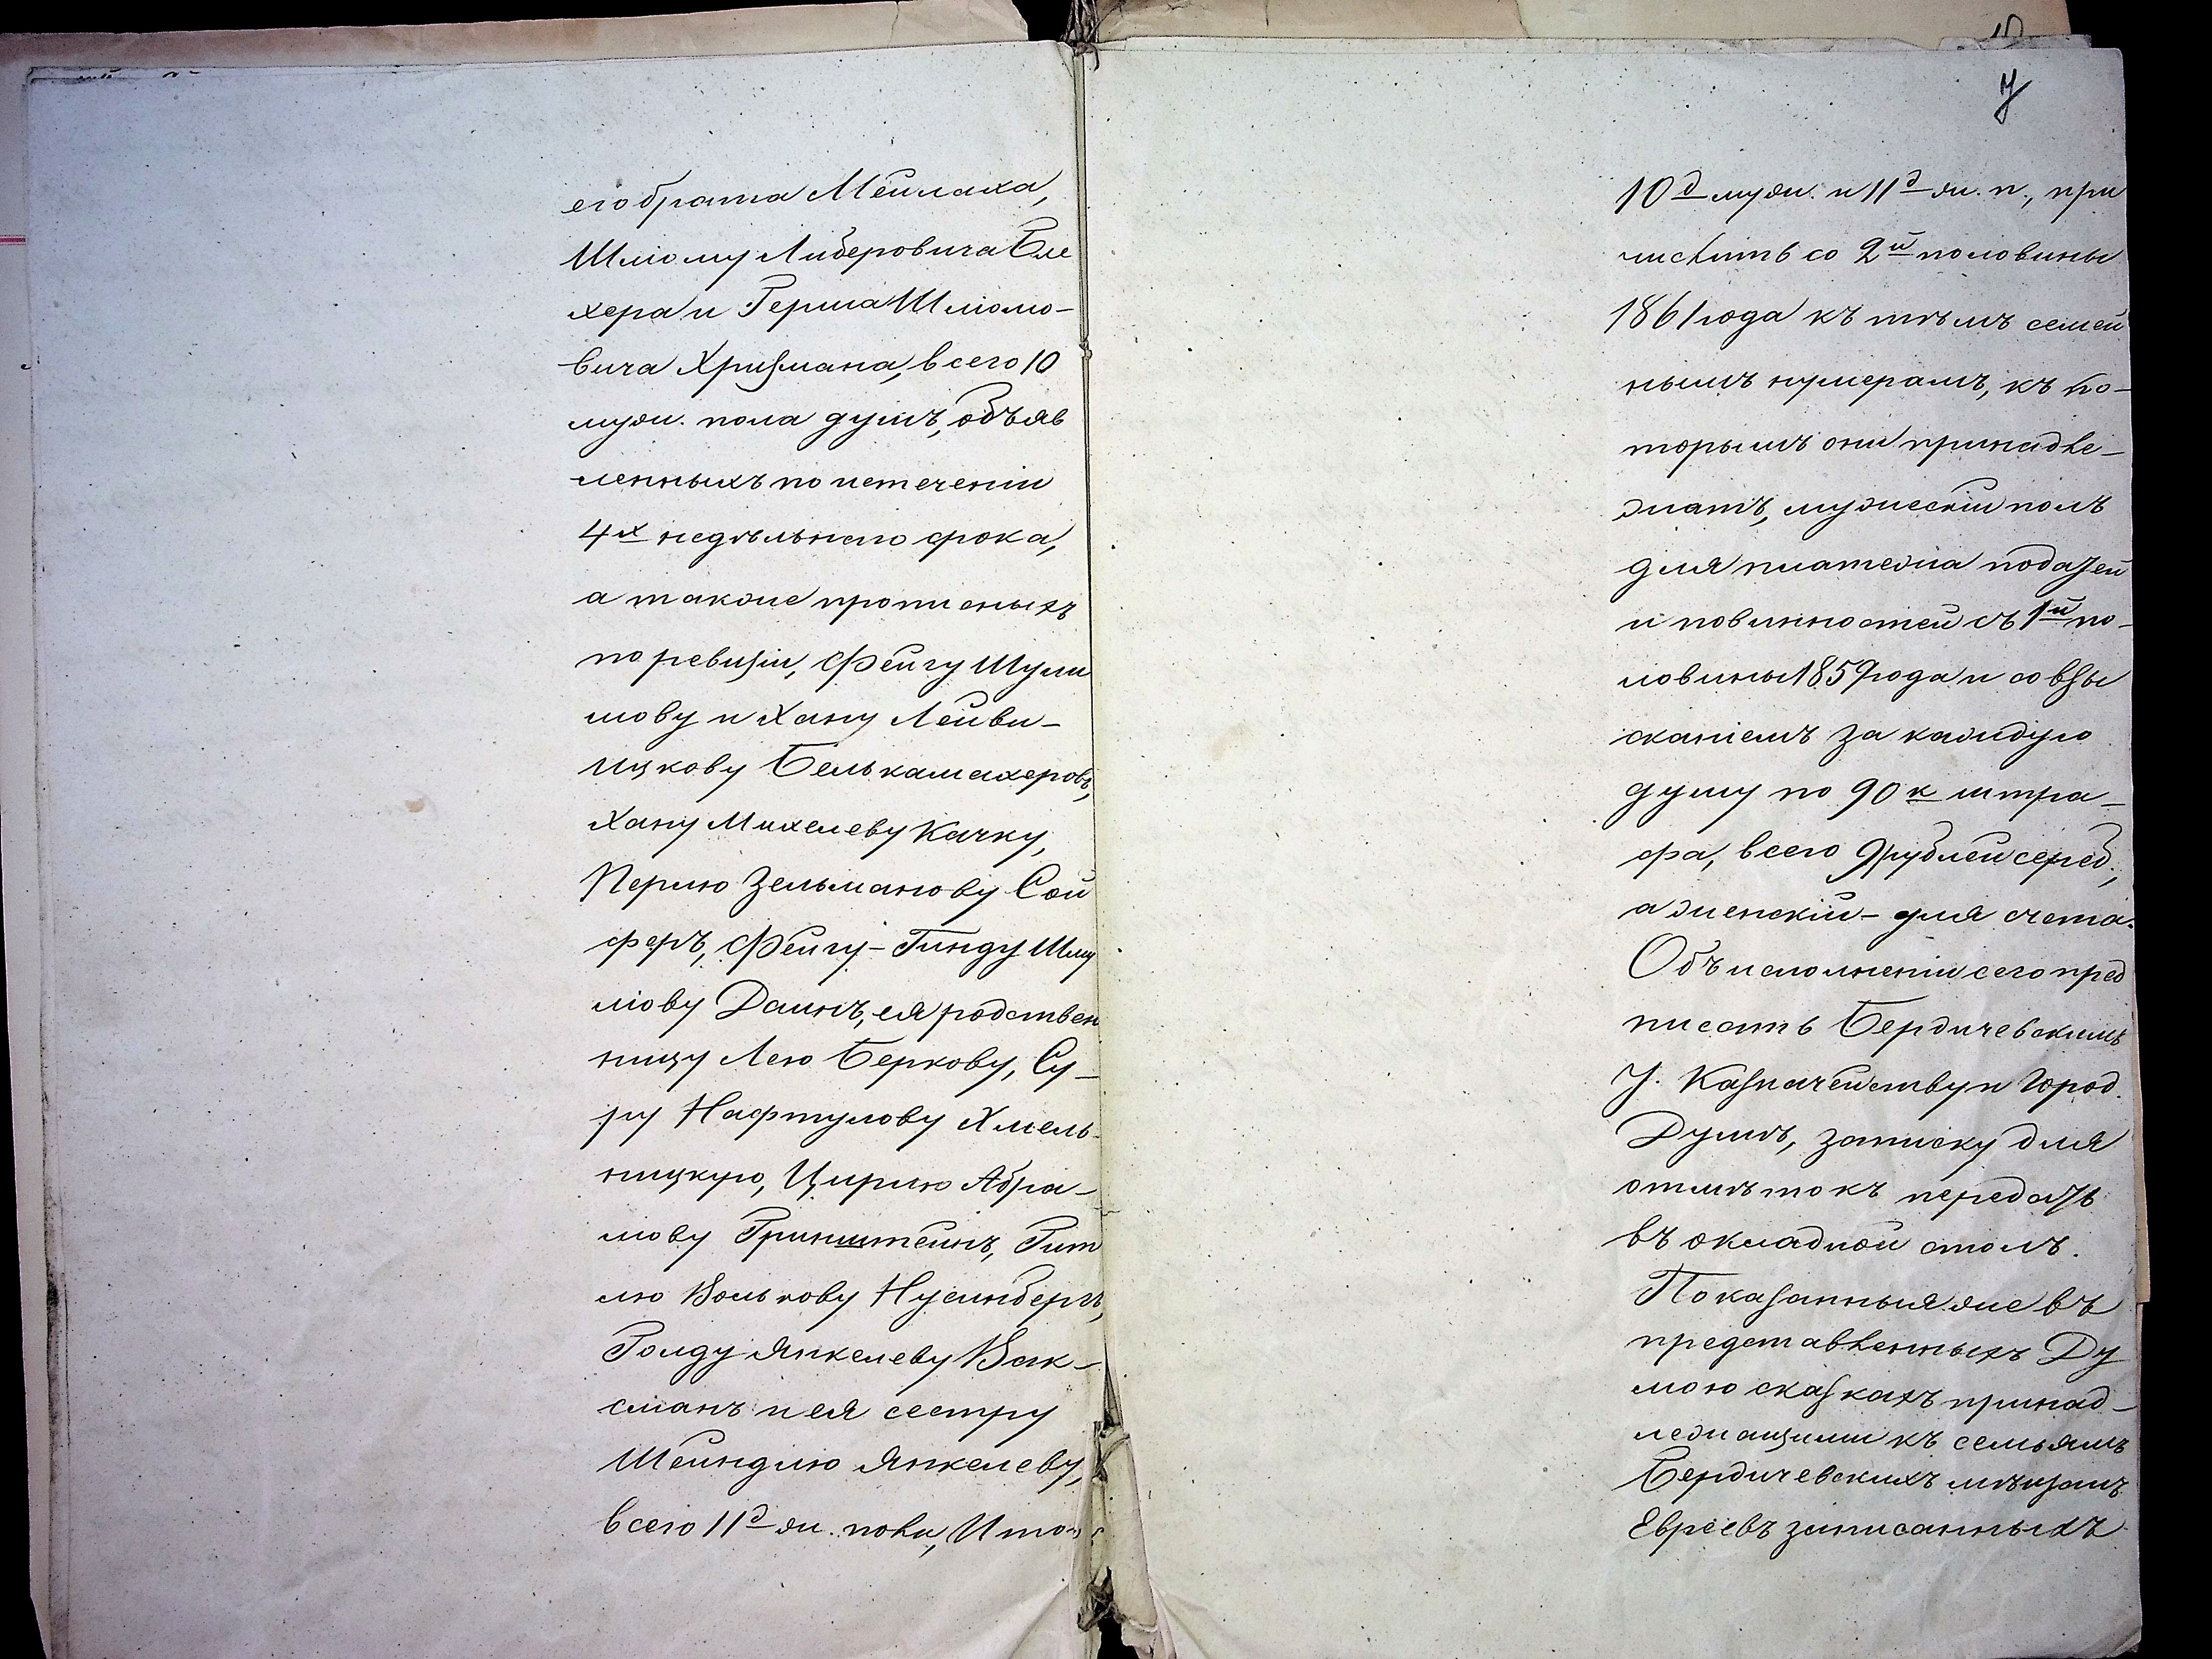 его брата Мейлаха,
Шлiому Либеровича Бле
хера и Герша Шлiомо-
вича Хризмана, всего 10
муж. пола душъ, объяв
ленныхъ по истеченiи
4х недѣльнаго срока,
а также прописныхъ
по ревизiи, Фейгу Шули
мову и Хану Лейви-
Ицкову Белькамахеровъ,
Хану Михелеву Качку,
Перлю Зельманову Сой
феръ, Фейгу-Гинду Шму
лiову Даинъ, ея родствен
ницу Лею Беркову, Су-
ру Нафтулову Хмель-
ницкую, Цирлю Абра-
мову Гринштейнъ, Гит
лю Волькову Нусинбергъ,
Голду Янкелеву Вак-
сманъ и ея сестру
Шейндлю Янкелеву,
всего 11д ж. пола, Итого
7
10д муж. и 11д ж. п., при
числить со 2й половины
1861 года къ тѣмъ семей
нымъ нумерамъ, къ ко-
торымъ они принадле-
жатъ, мужескiй полъ
для платежа податей
и повинностей съ 1й по-
ловины 1859 года и со взы
сканiемъ за каждую
душу по 90 к штра-
фа, всего 9 рублей сереб.,
а женскiй - для счета.
Объ исполненiи сего пред
писать Бердичевскимъ
У. Казначейству и Город.
Думѣ, записку для
отмѣтокъ передать
въ окладной столъ.
Показанныя же въ
представленныхъ Ду
мою сказкахъ принад-
лежащими къ семьямъ
Бердичевскихъ мѣщанъ
Евреевъ записанныхъ